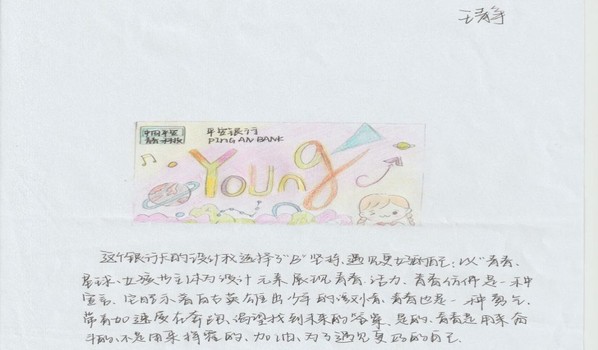 王靖宇
中国平安
平安银行
PING AN BANK
Young
这个银行卡的设计我选择了"B"坚持,遇见更好的自己;以"青春、
星球、女孩为主体为设计元素,展现青春、活力,青春仿佛是一种
宣言,它昭示着 少年的 青春也是一种勇气,
带着加速度在奔跑,渴望找到未来的答案,是的,青春是用来奋
斗的,不是用来挥霍的,加油,为了遇见更好的自己。